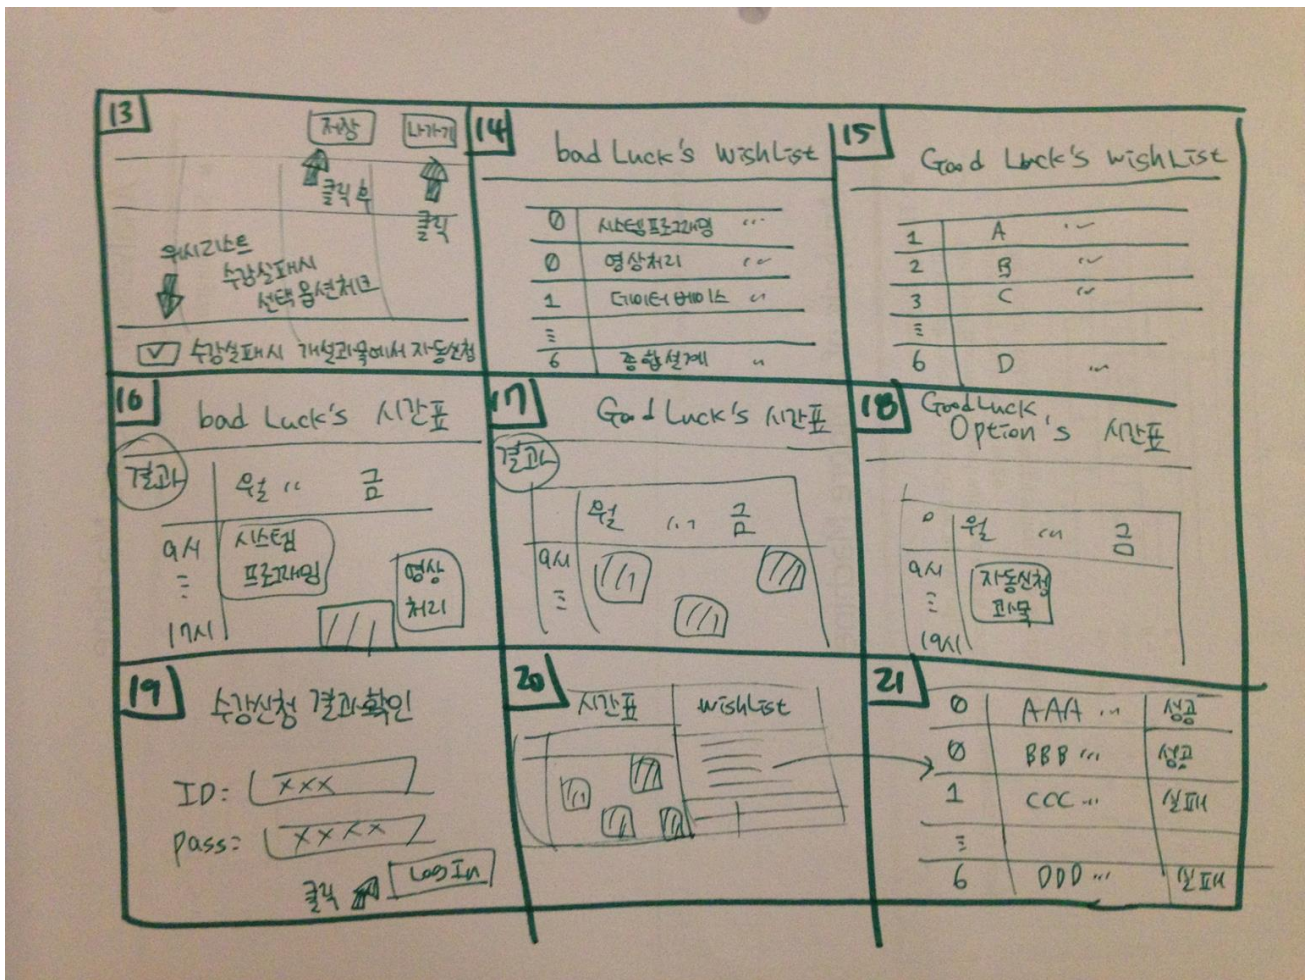 13
저장 나가기
클릭 후
클릭
위시리스트
수강실패시
선택 옵션체크
수강실패시 개설과목에서 자동신청
14
bad Luck's WishList
0 시스템프로그래밍 ...
0 영상처리 ...
1 데이터베이스 ...
6 종합설계 ..
15
Good Luck's WishList
1 A ...
2 B ...
3 C ...
6 D ...
16
bad Luck's 시간표
결과
월 .. 금
9시
시스템
프로그래밍
영상
처리
17시
17
Good Luck's 시간표
결과
월 ... 금
9시
18
GoodLuck
Option's 시간표
월 ... 금
9시
자동신청
과목
19시
19
수강신청 결과확인
ID: xxx
pass: xxxx
클릭 LogIn
20
시간표 WishList
21
0 AAA ... 성공
0 BBB ... 성공
1 CCC ... 실패
6 DDD ... 실패